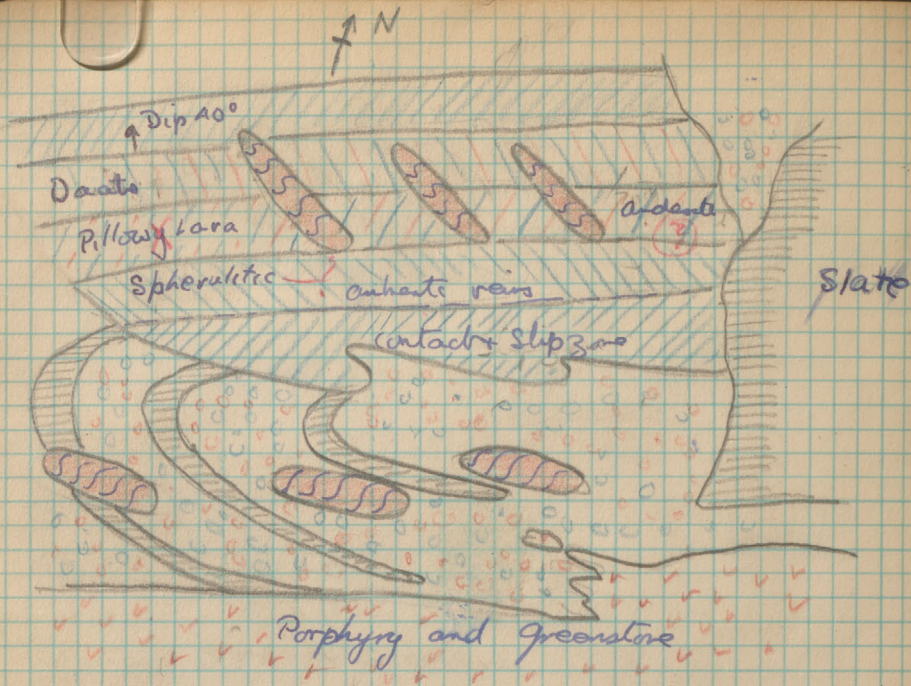 N
Dip 40°
Dacite
Pillowy Lava
andesite
?
Spherulitic ?
ankerite veins
Slate
Contact & Slip zone
Porphyry and greenstone